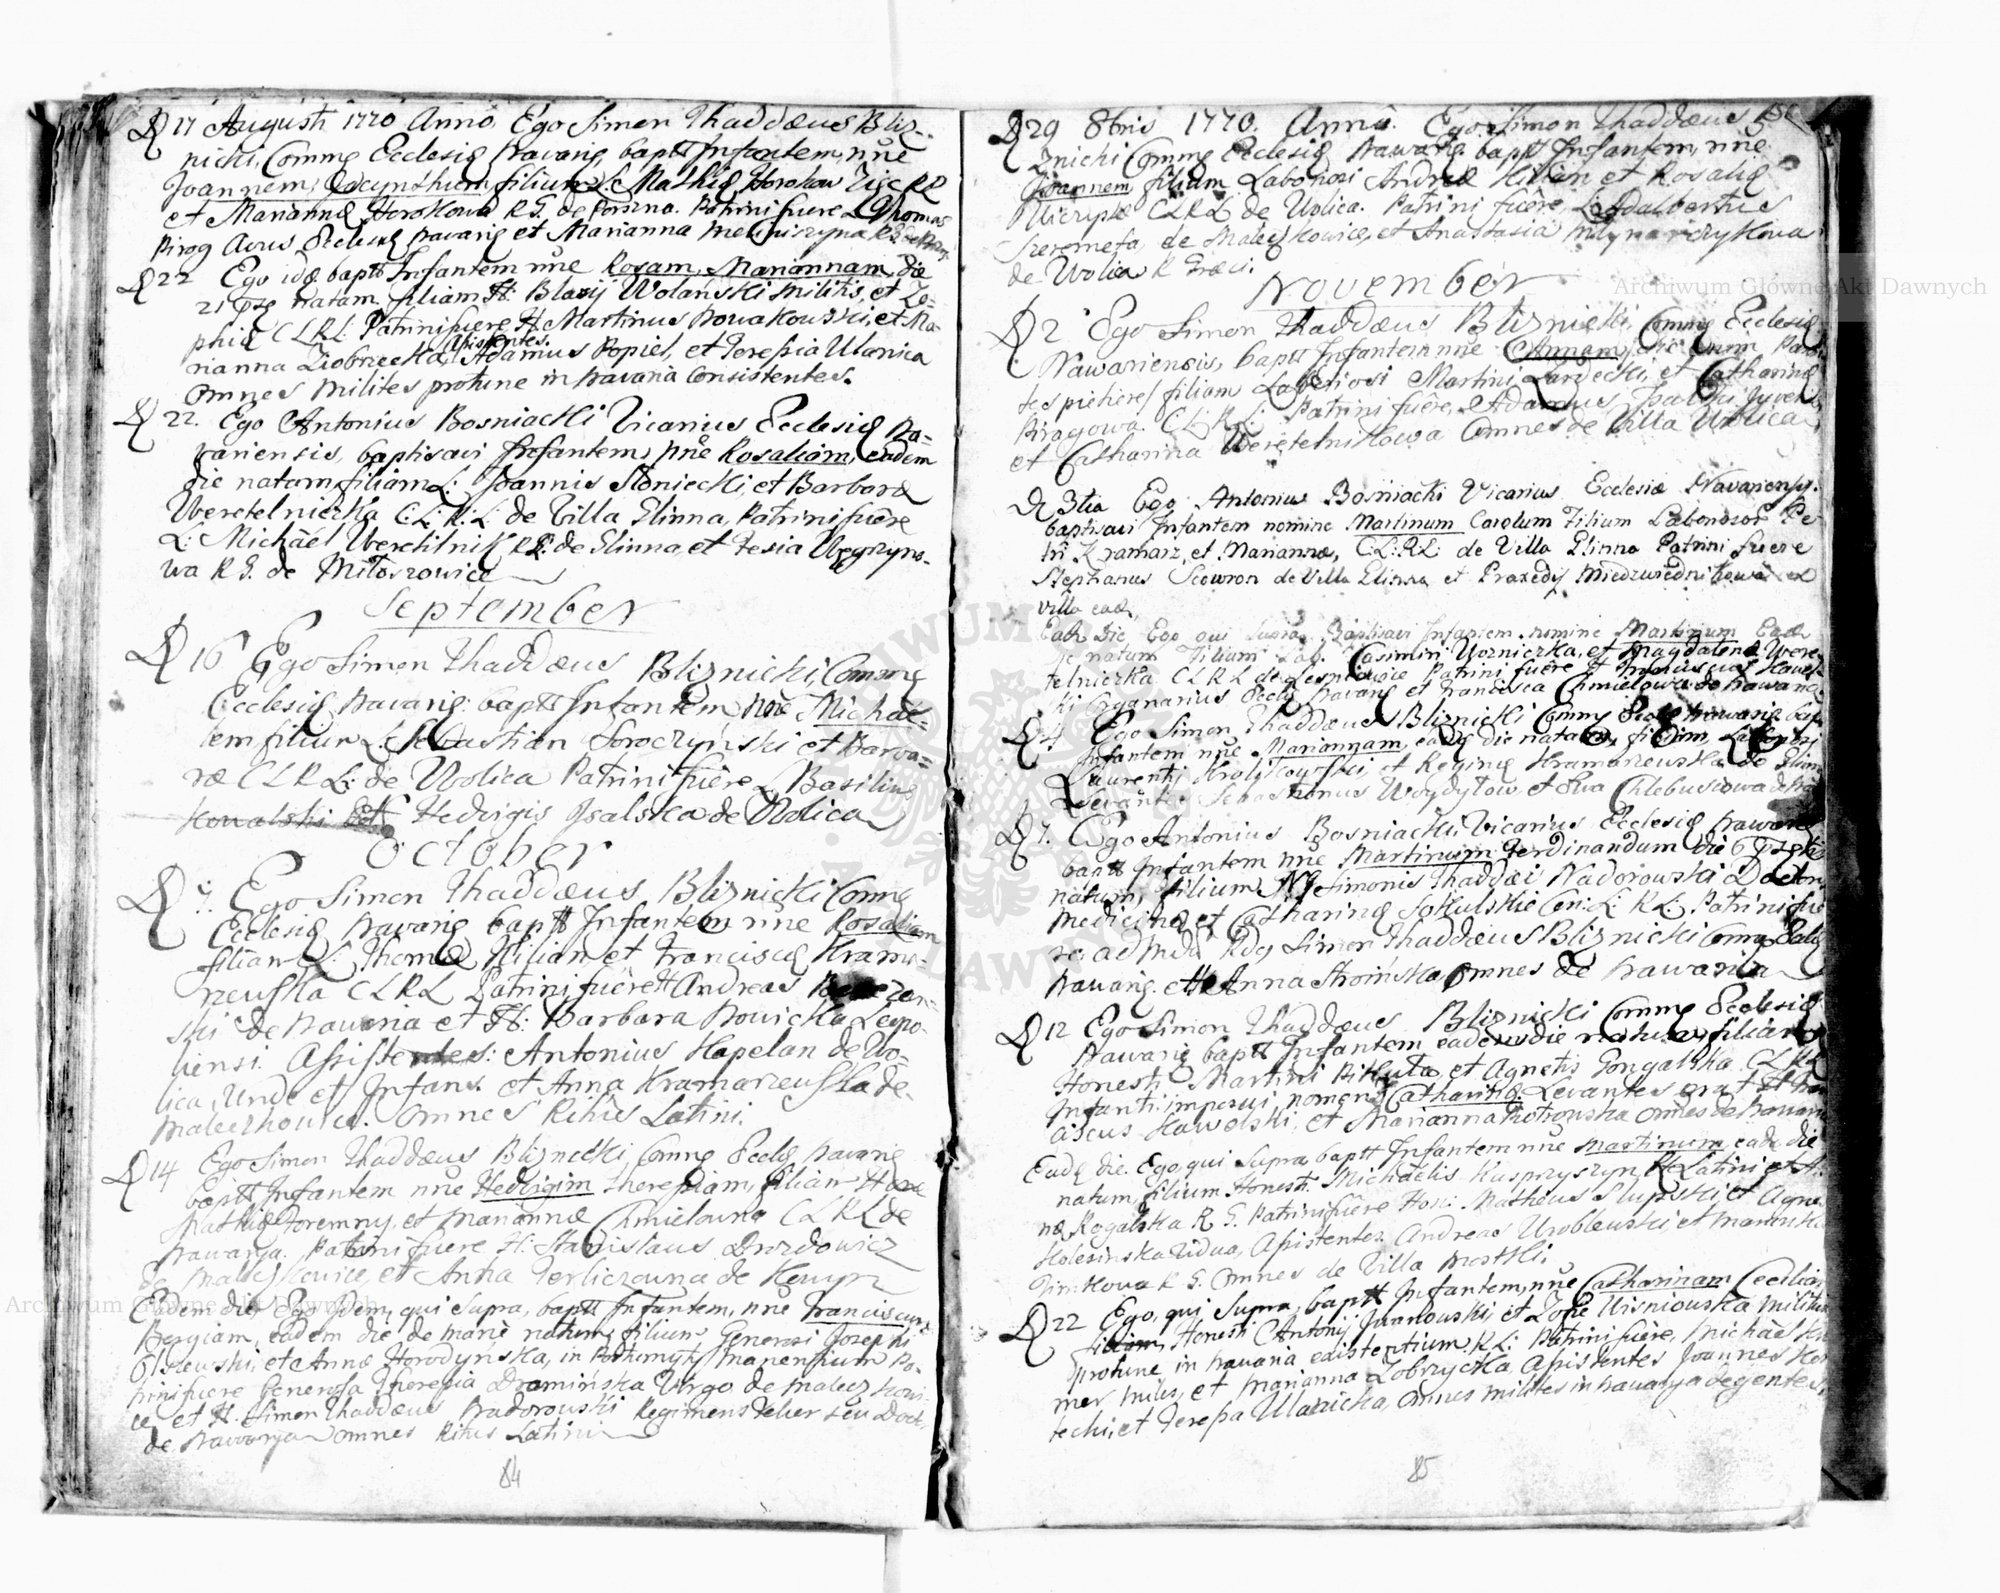 D 17 Augusti 1770 Anno, Ego Simon Thaddæus Bliz-
nicki, Comme Ecclesię Navarię, baptt Infantem, nñe
Joannem, Hyacynthum, filium L: Mathię Horokow
et Mariannę Horokowa R G. de Porszna. Patrini fuere L Thomas
Pirog Avus Ecclesię Navarię et Marianna
D 22 Ego idē baptt Infantem nñe Rosam, Mariannam, die
21 natam, filiam H: Blasij Wolański Militis, et Zo-
phię C L R L: Patrini fuere H Martinus Nowakowski, et Ma-
Assistentes.
rianna Ziobrzecka, Adamus Popiel, et Teressia Ulanica
omnes milites protunc in Navaria Consistentes.
D 22. Ego Antonius Bosniacki Vicarius Ecclesię Na-
variensis, baptisavi Infantem, nñe Rosaliam, eadem
die natam, filiam L: Joannis Słoniecki, et Barbaræ
Weretelniczka C: L: R: L: de Villa Glinna, Patrini fuêre
L: Michàël Weretilnik R L: de Glinna, et Tesia Węgrzyno-
wa R G. de Miłoszowice
September
D 16 Ego Simon Thaddæus Bliznicki, Comme
Ecclesię Navarię baptt Infantem nñe Michàe-
lem filium L: Sebastian Soroczyński et Barba-
ræ C L R L: de Wolica Patrini fuêre L Basilius
Kowalski et Hedvigis Psalska de Wolica
October
D 7. Ego Simon Thaddæus Bliznicki Comme
Ecclesię Navarię baptt Infantem nñe Rosaliam
filiam L: Thomæ Kilian et Franciscę Krama-
rzewska C L R L Patrini fuêre H Andreas
ski de Navaria et H: Barbara Nowicka Leopo-
liensi. Assistentes: Antonius Kapelan de Wo-
lica, Unde et Infans. et Anna Kramarzewska de
Maleczkowice. Omnes Ritûs Latini.
D 14 Ego Simon Thaddæus Bliznicki, Comme Eccłię Navarię
baptt Infantem nñe Hedvigim Theressiam, filiam
Mathię Foremny, et Mariannæ Chmielowna C L R L de
Navarya. Patrini fuere H: Stanislaus Drozdowicz
de Maleczkowice, et Anna Terliczowna de
Eadem die, Ego Idem, qui supra, baptt Infantem, nñe Franciscum
Bergiam, eadem die de manè natum, filium Generosi Josephi
et Annæ Horodyńska, in manentium Pa-
trini fuere Generosa Theressia Dramińska Virgo de Maleczkowi-
ce, et H. Simon Thaddæus Nadorowski Regimens Felcer seu Doct.
de Navarya omnes Ritus Latini
84
D 29 8bris 1770. Annô. Ego Simon Thaddæus Bli-
znicki Comme Ecclesię Navarię baptt Infantem, nñe
Joannem, filium Laboriosi Andreæ Kilian et Rosalię
C L R L de Wolica. Patrini fuêre, L: Adalbertus
Szeremeta de Maleczkowice, et Anastasia Młynarczykowa
de Wolica R Græci.
November
D 2 Ego Simon Thaddæus Bliznicki, Comme Ecclesię
Nawariensis, baptt Infantem nñe Annam,
filiam Laboriosi Martini Zardecki, et Catharinę
Piragowa. C L: R L: Patrini fuêre, Adamus Psalski Juvenis
et Catharina Weretelnikowa Omnes de Villa Wolica
D 3tia Ego Antonius Bosniacki Vicarius Ecclesiæ Navariensis
baptisavi Infantem nomine Martinum Carolum Filium Laboriosor Pe-
tri Kramarz, et Mariannæ, C: L: R L: de Villa Glinna Patrini fuere
Stephanus Scowron de Villa Glinna et Praxedij Miedzwiednikowa ex
villa ead
Eadē die Ego qui supra Baptisavi Infantem nomine Martinum Eadē
die natum Filium Lab. Casimiri Woznizka, et Magdalenæ Were-
telniczka C L R L de Patrini fuêre H Franciscus Hawel-
ski Organarius Eccłię Navarię et Francisca Chmielowa de Navaria
D 4 Ego Simon Thaddæus Bliznicki Comme Ecclę Navarię bap-
Infantem nñe Mariannam, eadē die natam, filiam, Laboriosi
Laurentij et Reginę Kramarzewska de Glinna
Levantes Sebastianus Woydyłow, et Eva Chlebusiowa de
D 7. Ego Antonius Bosniacki Vicarius Ecclesię Navarię
baptt Infantem nñe Martinum Ferdinandum die 6
natum, filium Simonis Thaddæi Nadorowski Doctor
Medicinæ et Catharinę Sokulskie Con: L: R L: Patrini fue
re: ad Mdū Rdg Simon Thaddæus Bliznicki Comme Eccłię
Navarię. et H Anna Stroińska, omnes de Navaria
D 12 Ego Simon Thaddæus Bliznicki Comme Ecclesię
Nawarię baptt Infantem eadem die natam, filiam
Honesti Martini et Agnetis Gongalska C L R L
Infanti imposui nomen Catharinę. Levantes erat H Fran
ciscus Hawelski, et Marianna Piotrowska omnes de Navaria
Eadē die. Ego, qui supra, baptt Infantem nñe Martinum, eadē die
natum, filium Honest. Michäelis Kasprzyszyn, R Latini et A
næ Rogalska R G. Patrini fuêre Hon: Mathêus Słupski, et Agne
Kolesinska Vidua, Assistentes Andreas Wroblewski, et Marian
kowa R G. omnes de Villa Mostki.
D 22 Ego, qui supra, baptt Infantem, nñe Catharinam Cæcilia
filiam, Honesti Antonij Jwanowski, et Zofie Wisniowska Militum
protunc in Navaria existentium R L: Patrini fuêre, Michäel Kra
mer miles, et Marianna Zobrzycka, Assistentes Joannes Kor
techi, et Teressa Ulanicka, omnes milites in Navarya degentes.
85
Archiwum Główne Akt Dawnych
Archiwum Główne Akt Dawnych